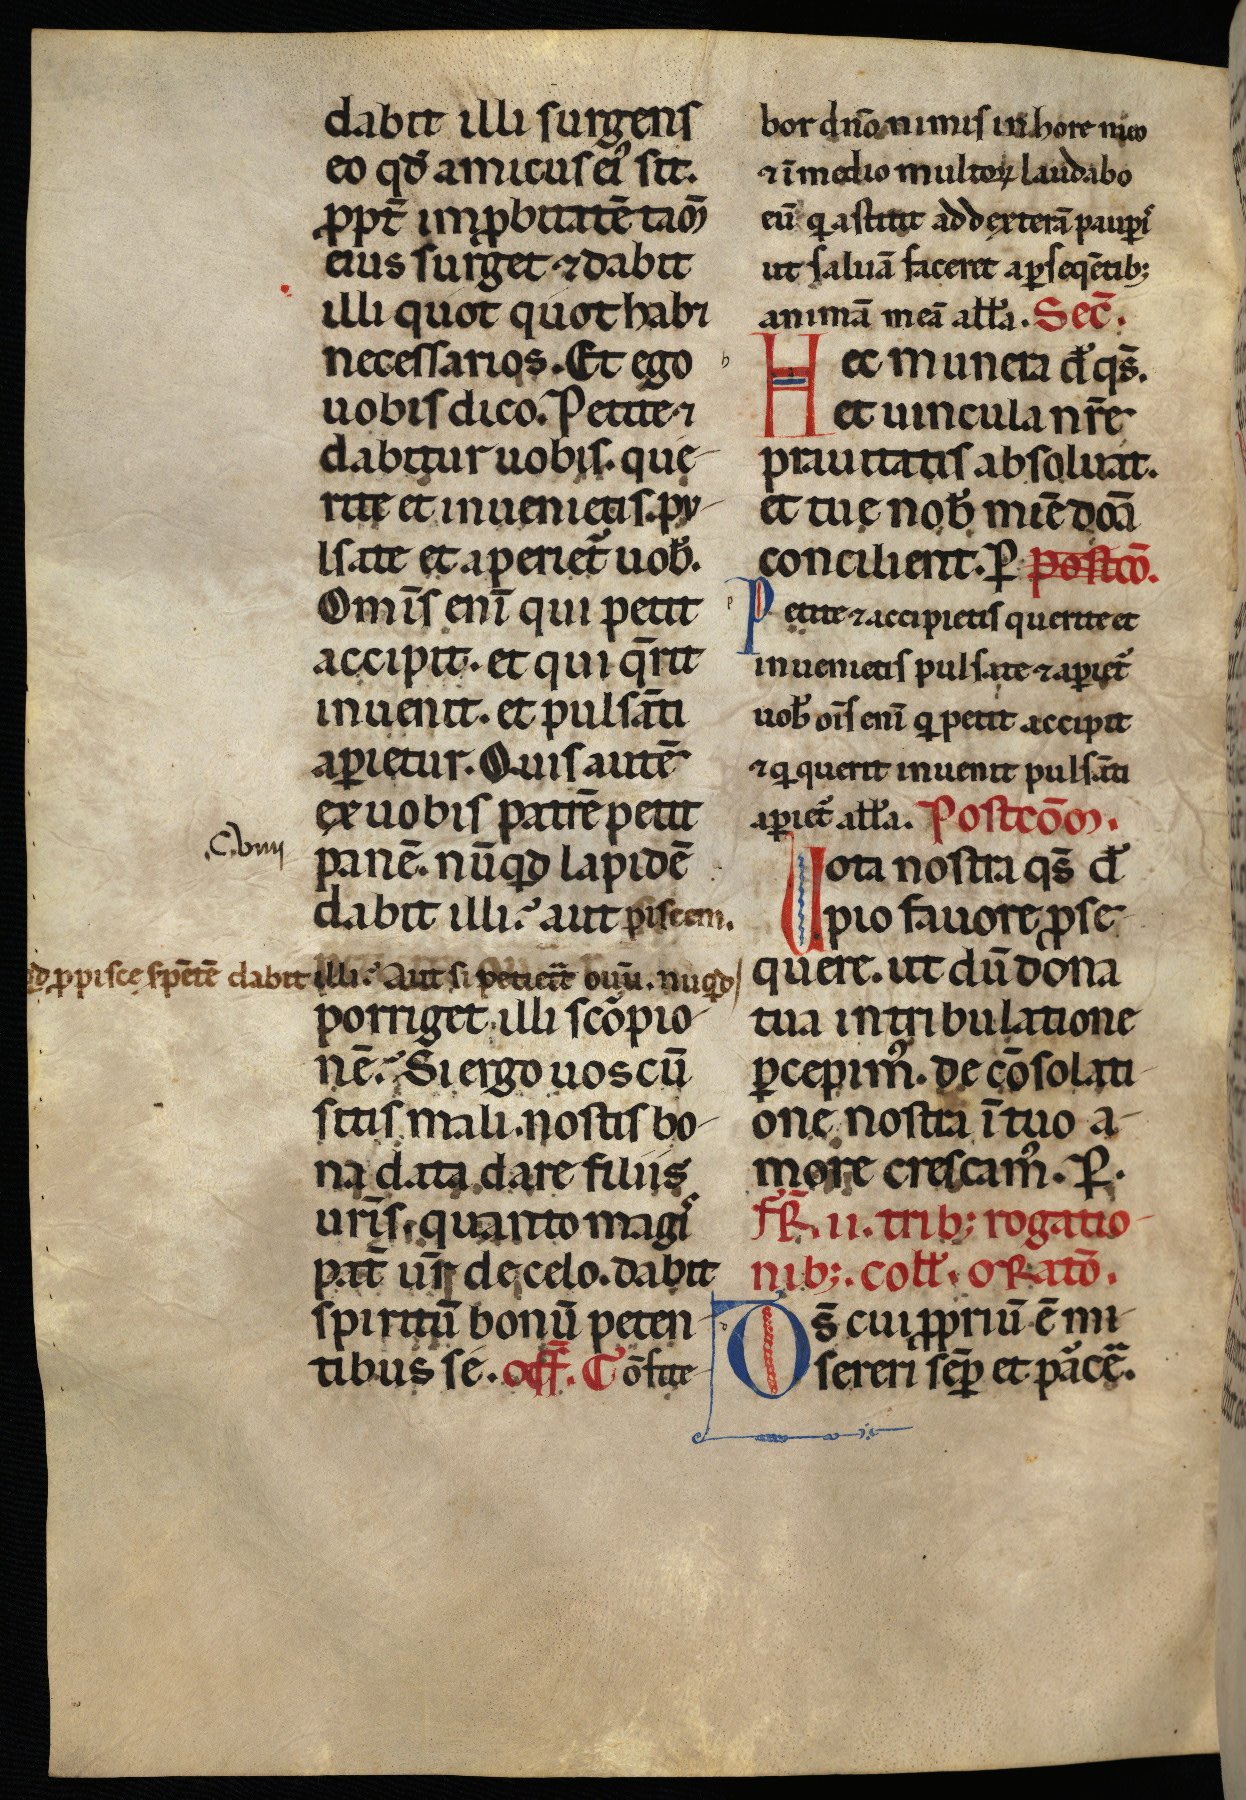 dabit illi surgens
eo qđ amicus ei᾽ sit.
ꝓpt̄ imꝓbitatē tam̄
eius surget ⁊ dabit
illi quot quot habꝫ
necessarios. Et ego
uobis dico. Petite ⁊
dabitur uobis. que
rite et inuenietis. pu
lsate et aperiet᷑ uob̄.
Om̄is enī qui petit
accipit. et qui q̄rit
inuenit. et pulsāti
aꝑietur. Quis autē
ex uobis patrē petit
.C. viiii
panē. nūqd lapidē
dabit illi? aut piscem.
ꝓ pisce sꝑētē dabit illi? Aut si petierit ouū. nūqd
porriget illi scorpio
nē? Si ergo uos cū
sitis mali. nostis bo
na data dare filiis
ur̄is. quanto magis
pat̄ ur̄ de celo. dabit
spiritū bonū peten
tibus se. off̄. Cōfite
bor dn̄o nimis in hore meo
⁊ ī medio multoꝝ laudabo
eū q̇ astitit ad dexterā pauꝑis
ut saluā faceret a ꝑseqētibꝫ
animā meā all̄a. Sec̄.
Hec munera d̄ qs̄.
et uincula nr̄e
prauitatis absoluāt.
et tuę nob̄ mīe dona
concilient. P̄ postcō.
Petite ⁊ accipietis querite et
inuenietis pulsate ⁊ aꝑiet᷑
uob̄ oīs enī q̇ petit accipit
⁊ q̇ querit inuenit pulsāti
aꝑiet᷑ all̄a. Postcōm.
Uota nostra qs̄ d̄
pio fauore ꝓse
quere. ut dū dona
tua in tribulatione
ꝑcepim᾽. de cōsolati
one nostra ī tuo a
more crescam᾽. P̄.
FR̄. ii. tribꝫ rogatio
nibꝫ. coll̄. oRatō.
Ds̄ cui ꝓpriū ē mi
sereri sēꝑ et ꝑcē.